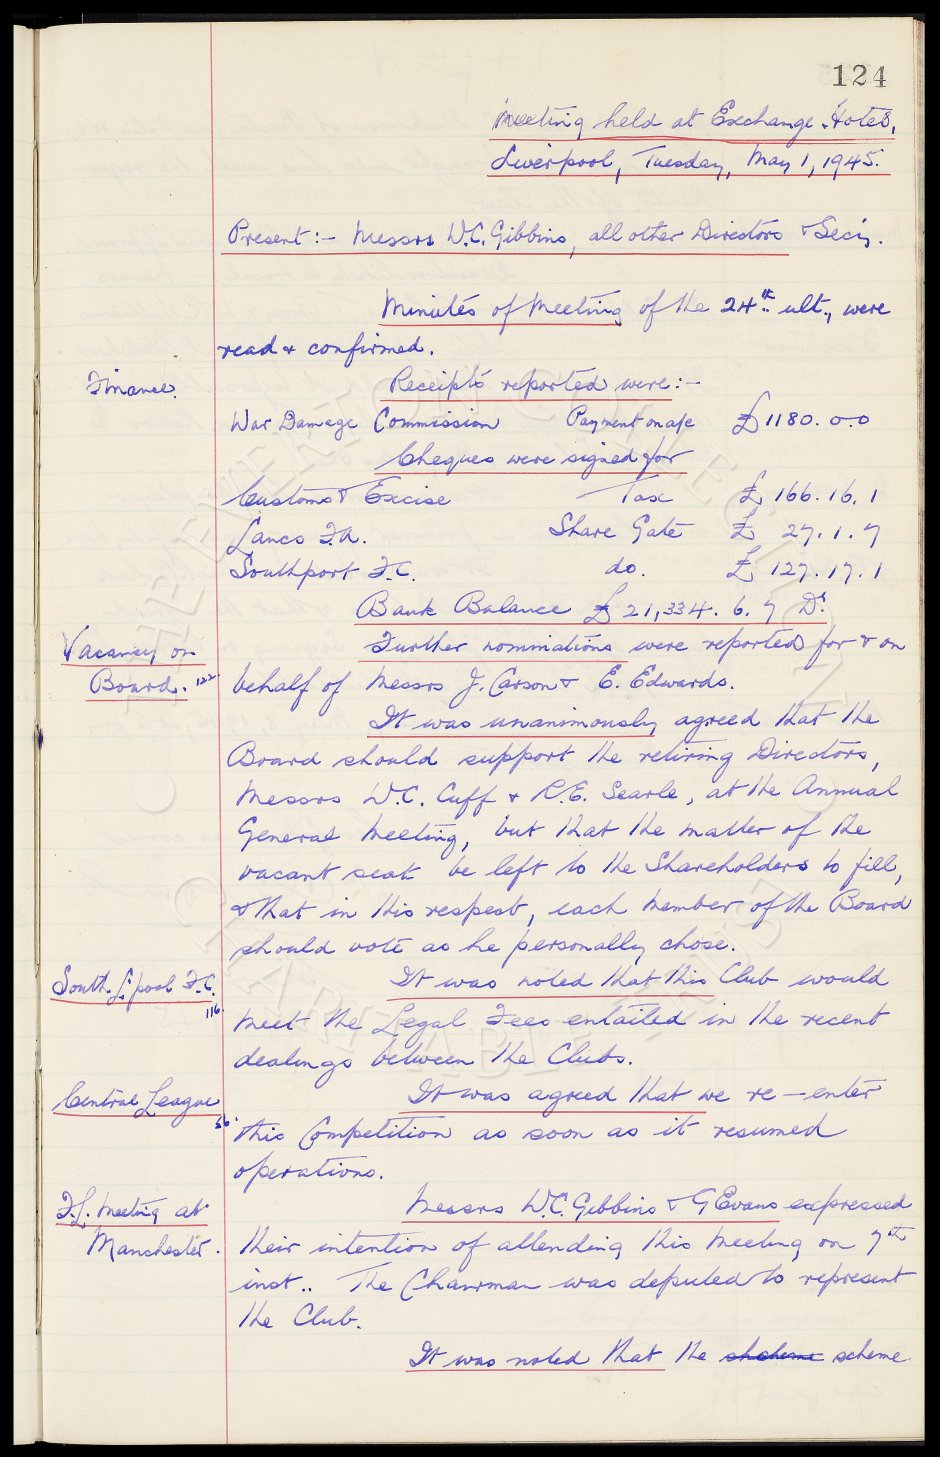 124
Meeting held at Exchange Hotel,
Liverpool, Tuesday, May 1, 1945.
Present:- Messrs W.C. Gibbins, all other Directors & Secy.
Minutes of Meeting of the 24th ult., were
read & confirmed.
Finance. Receipts reported were:-
War Damage Commission Payment on a/c £1180.0.0
Cheques were signed for
Customs & Excise Tax £166.16.1
Lancs F.A. Share Gate £27.1.7
Southport F.C. do. £127.17.1
Bank Balance £21,334.6.7 Dr.
Vacancy on Further nominations were reported for & on
Board. 122 behalf of Messrs J. Carson & E. Edwards.
It was unanimously agreed that the
Board should support the retiring Directors,
Messrs W.C. Cuff & R.E. Searle, at the Annual
General Meeting, but that the matter of the
vacant seat be left to the Shareholders to fill,
& that in this respect, each member of the Board
should vote as he personally chose.
South L'pool F.C. It was noted that this Club would
116 meet the Legal Fees entailed in the recent
dealings between the Clubs.
Central League It was agreed that we re-enter
56. this Competition as soon as it resumed
operations.
F.L. Meeting at Messrs W.C. Gibbins & G Evans expressed
Manchester. their intention of attending this meeting on 7th
inst.. The Chairman was deputed to represent
the Club.
It was noted that the shcheme scheme